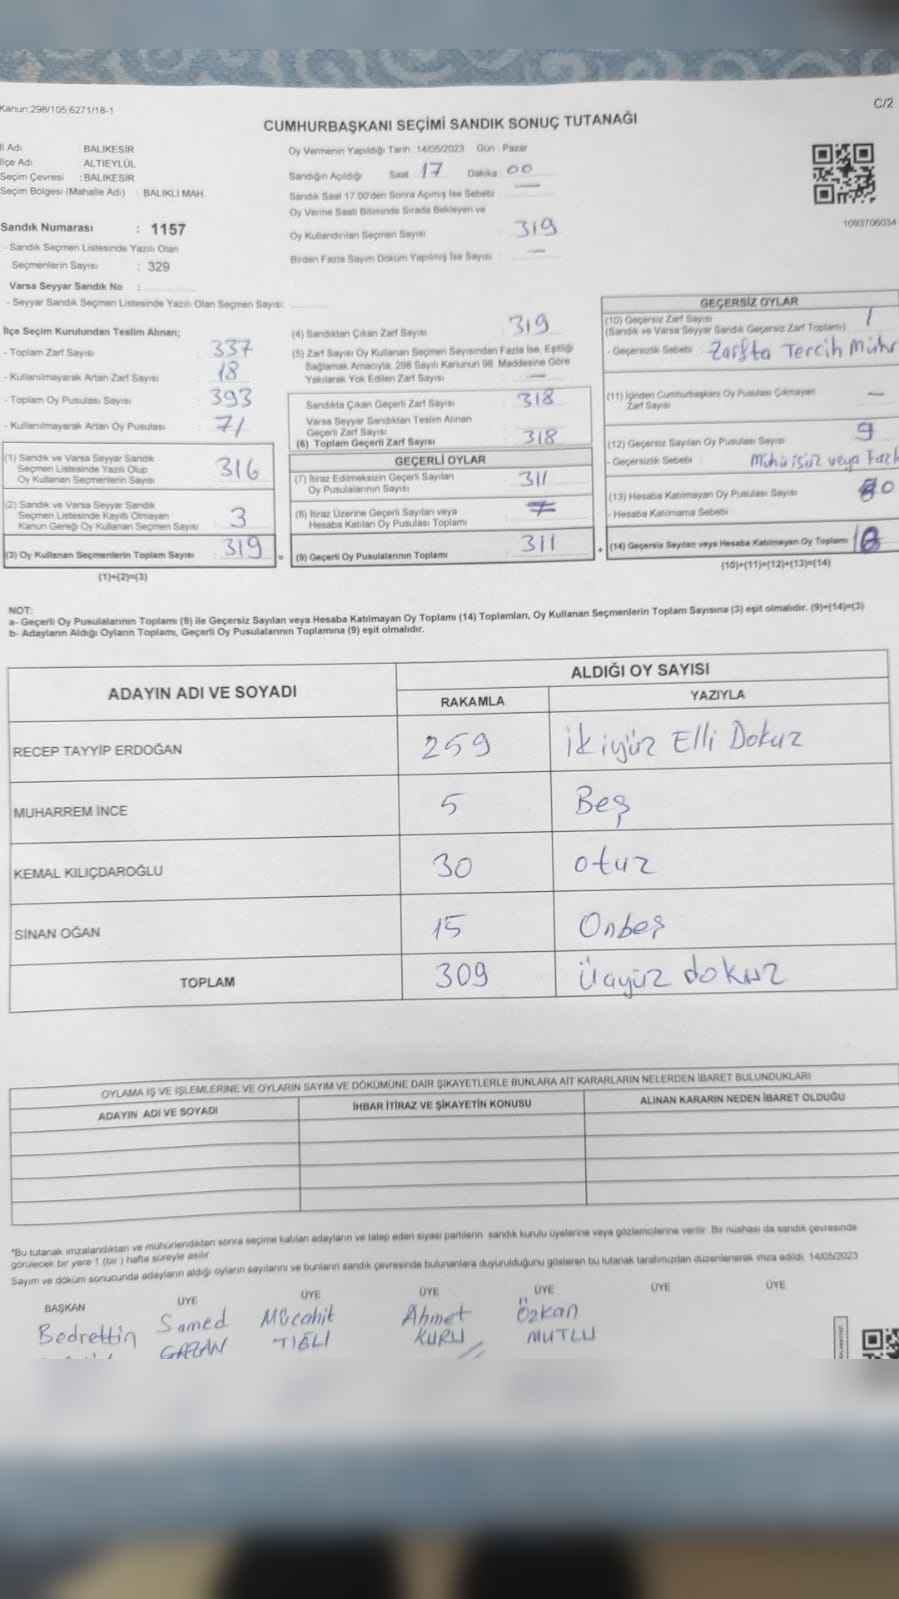 Kanun:298/105:6271/18-1
C/2
CUMHURBAŞKANI SEÇİMİ SANDIK SONUÇ TUTANAĞI
İl Adı BALIKESİR
İlçe Adı ALTIEYLÜL
Seçim Çevresi : BALIKESİR
Seçim Bölgesi (Mahalle Adı) : BALIKLI MAH.
Sandık Numarası : 1157
- Sandık Seçmen Listesinde Yazılı Olan
Seçmenlerin Sayısı : 329
Varsa Seyyar Sandık No :
- Seyyar Sandık Seçmen Listesinde Yazılı Olan Seçmen Sayısı:
Oy Vermenin Yapıldığı Tarih :14/05/2023 Gün : Pazar
Sandığın Açıldığı Saat 17 Dakika 00
Sandık Saat 17.00'den Sonra Açılmış İse Sebebi :
Oy Verme Saati Bitiminde Sırada Bekleyen ve
Oy Kullandırılan Seçmen Sayısı : 319
Birden Fazla Sayım Döküm Yapılmış İse Sayısı :
1093706034
İlçe Seçim Kurulundan Teslim Alınan;
- Toplam Zarf Sayısı : 337
- Kullanılmayarak Artan Zarf Sayısı : 18
- Toplam Oy Pusulası Sayısı : 393
- Kullanılmayarak Artan Oy Pusulası : 71
(1) Sandık ve Varsa Seyyar Sandık
Seçmen Listesinde Yazılı Olup
Oy Kullanan Seçmenlerin Sayısı 316
(2) Sandık ve Varsa Seyyar Sandık
Seçmen Listesinde Kayıtlı Olmayan
Kanun Gereği Oy Kullanan Seçmen Sayısı 3
(3) Oy Kullanan Seçmenlerin Toplam Sayısı 319 =
(1)+(2)=(3)
(4) Sandıktan Çıkan Zarf Sayısı : 319
(5) Zarf Sayısı Oy Kullanan Seçmen Sayısından Fazla İse, Eşitliği
Sağlamak Amacıyla, 298 Sayılı Kanunun 98. Maddesine Göre
Yakılarak Yok Edilen Zarf Sayısı :
Sandıkta Çıkan Geçerli Zarf Sayısı : 318
Varsa Seyyar Sandıktan Teslim Alınan
Geçerli Zarf Sayısı :
(6) Toplam Geçerli Zarf Sayısı : 318
GEÇERLİ OYLAR
(7) İtiraz Edilmeksizin Geçerli Sayılan
Oy Pusulalarının Sayısı : 311
(8) İtiraz Üzerine Geçerli Sayılan veya
Hesaba Katılan Oy Pusulası Toplamı :
(9) Geçerli Oy Pusulalarının Toplamı : 311 +
GEÇERSİZ OYLAR
(10) Geçersiz Zarf Sayısı 1
(Sandık ve Varsa Seyyar Sandık Geçersiz Zarf Toplamı)
- Geçersizlik Sebebi : Zarfta Tercih Mühr
(11) İçinden Cumhurbaşkanı Oy Pusulası Çıkmayan
Zarf Sayısı
(12) Geçersiz Sayılan Oy Pusulası Sayısı 9
- Geçersizlik Sebebi : Mühürsüz veya Fazl
(13) Hesaba Katılmayan Oy Pusulası Sayısı 0
- Hesaba Katılmama Sebebi
(14) Geçersiz Sayılan veya Hesaba Katılmayan Oy Toplamı
(10)+(11)+(12)+(13)=(14)
NOT:
a- Geçerli Oy Pusulalarının Toplamı (9) ile Geçersiz Sayılan veya Hesaba Katılmayan Oy Toplamı (14) Toplamları, Oy Kullanan Seçmenlerin Toplam Sayısına (3) eşit olmalıdır. (9)+(14)=(3)
b- Adayların Aldığı Oyların Toplamı, Geçerli Oy Pusulalarının Toplamına (9) eşit olmalıdır.
ADAYIN ADI VE SOYADI
ALDIĞI OY SAYISI
RAKAMLA YAZIYLA
RECEP TAYYİP ERDOĞAN 259 ikiyüz Elli Dokuz
MUHARREM İNCE 5 Beş
KEMAL KILIÇDAROĞLU 30 otuz
SİNAN OĞAN 15 Onbeş
TOPLAM 309 Üçyüz dokuz
OYLAMA İŞ VE İŞLEMLERİNE VE OYLARIN SAYIM VE DÖKÜMÜNE DAİR ŞİKAYETLERLE BUNLARA AİT KARARLARIN NELERDEN İBARET BULUNDUKLARI
ADAYIN ADI VE SOYADI İHBAR İTİRAZ VE ŞİKAYETİN KONUSU ALINAN KARARIN NEDEN İBARET OLDUĞU
*Bu tutanak imzalandıktan ve mühürlendikten sonra seçime katılan adayların ve talep eden siyasi partilerin sandık kurulu üyelerine veya gözlemcilerine verilir. Bir nüshası da sandık çevresinde
görülecek bir yere 1 (bir ) hafta süreyle asılır.
Sayım ve döküm sonucunda adayların aldığı oyların sayılarını ve bunların sandık çevresinde bulunanlara duyurulduğunu gösteren bu tutanak tarafımızdan düzenlenerek imza edildi. 14/05/2023
BAŞKAN ÜYE ÜYE ÜYE ÜYE ÜYE ÜYE
Bedrettin Samed Mücahit Ahmet Özkan
GAZAN TIĞLI KURU MUTLU